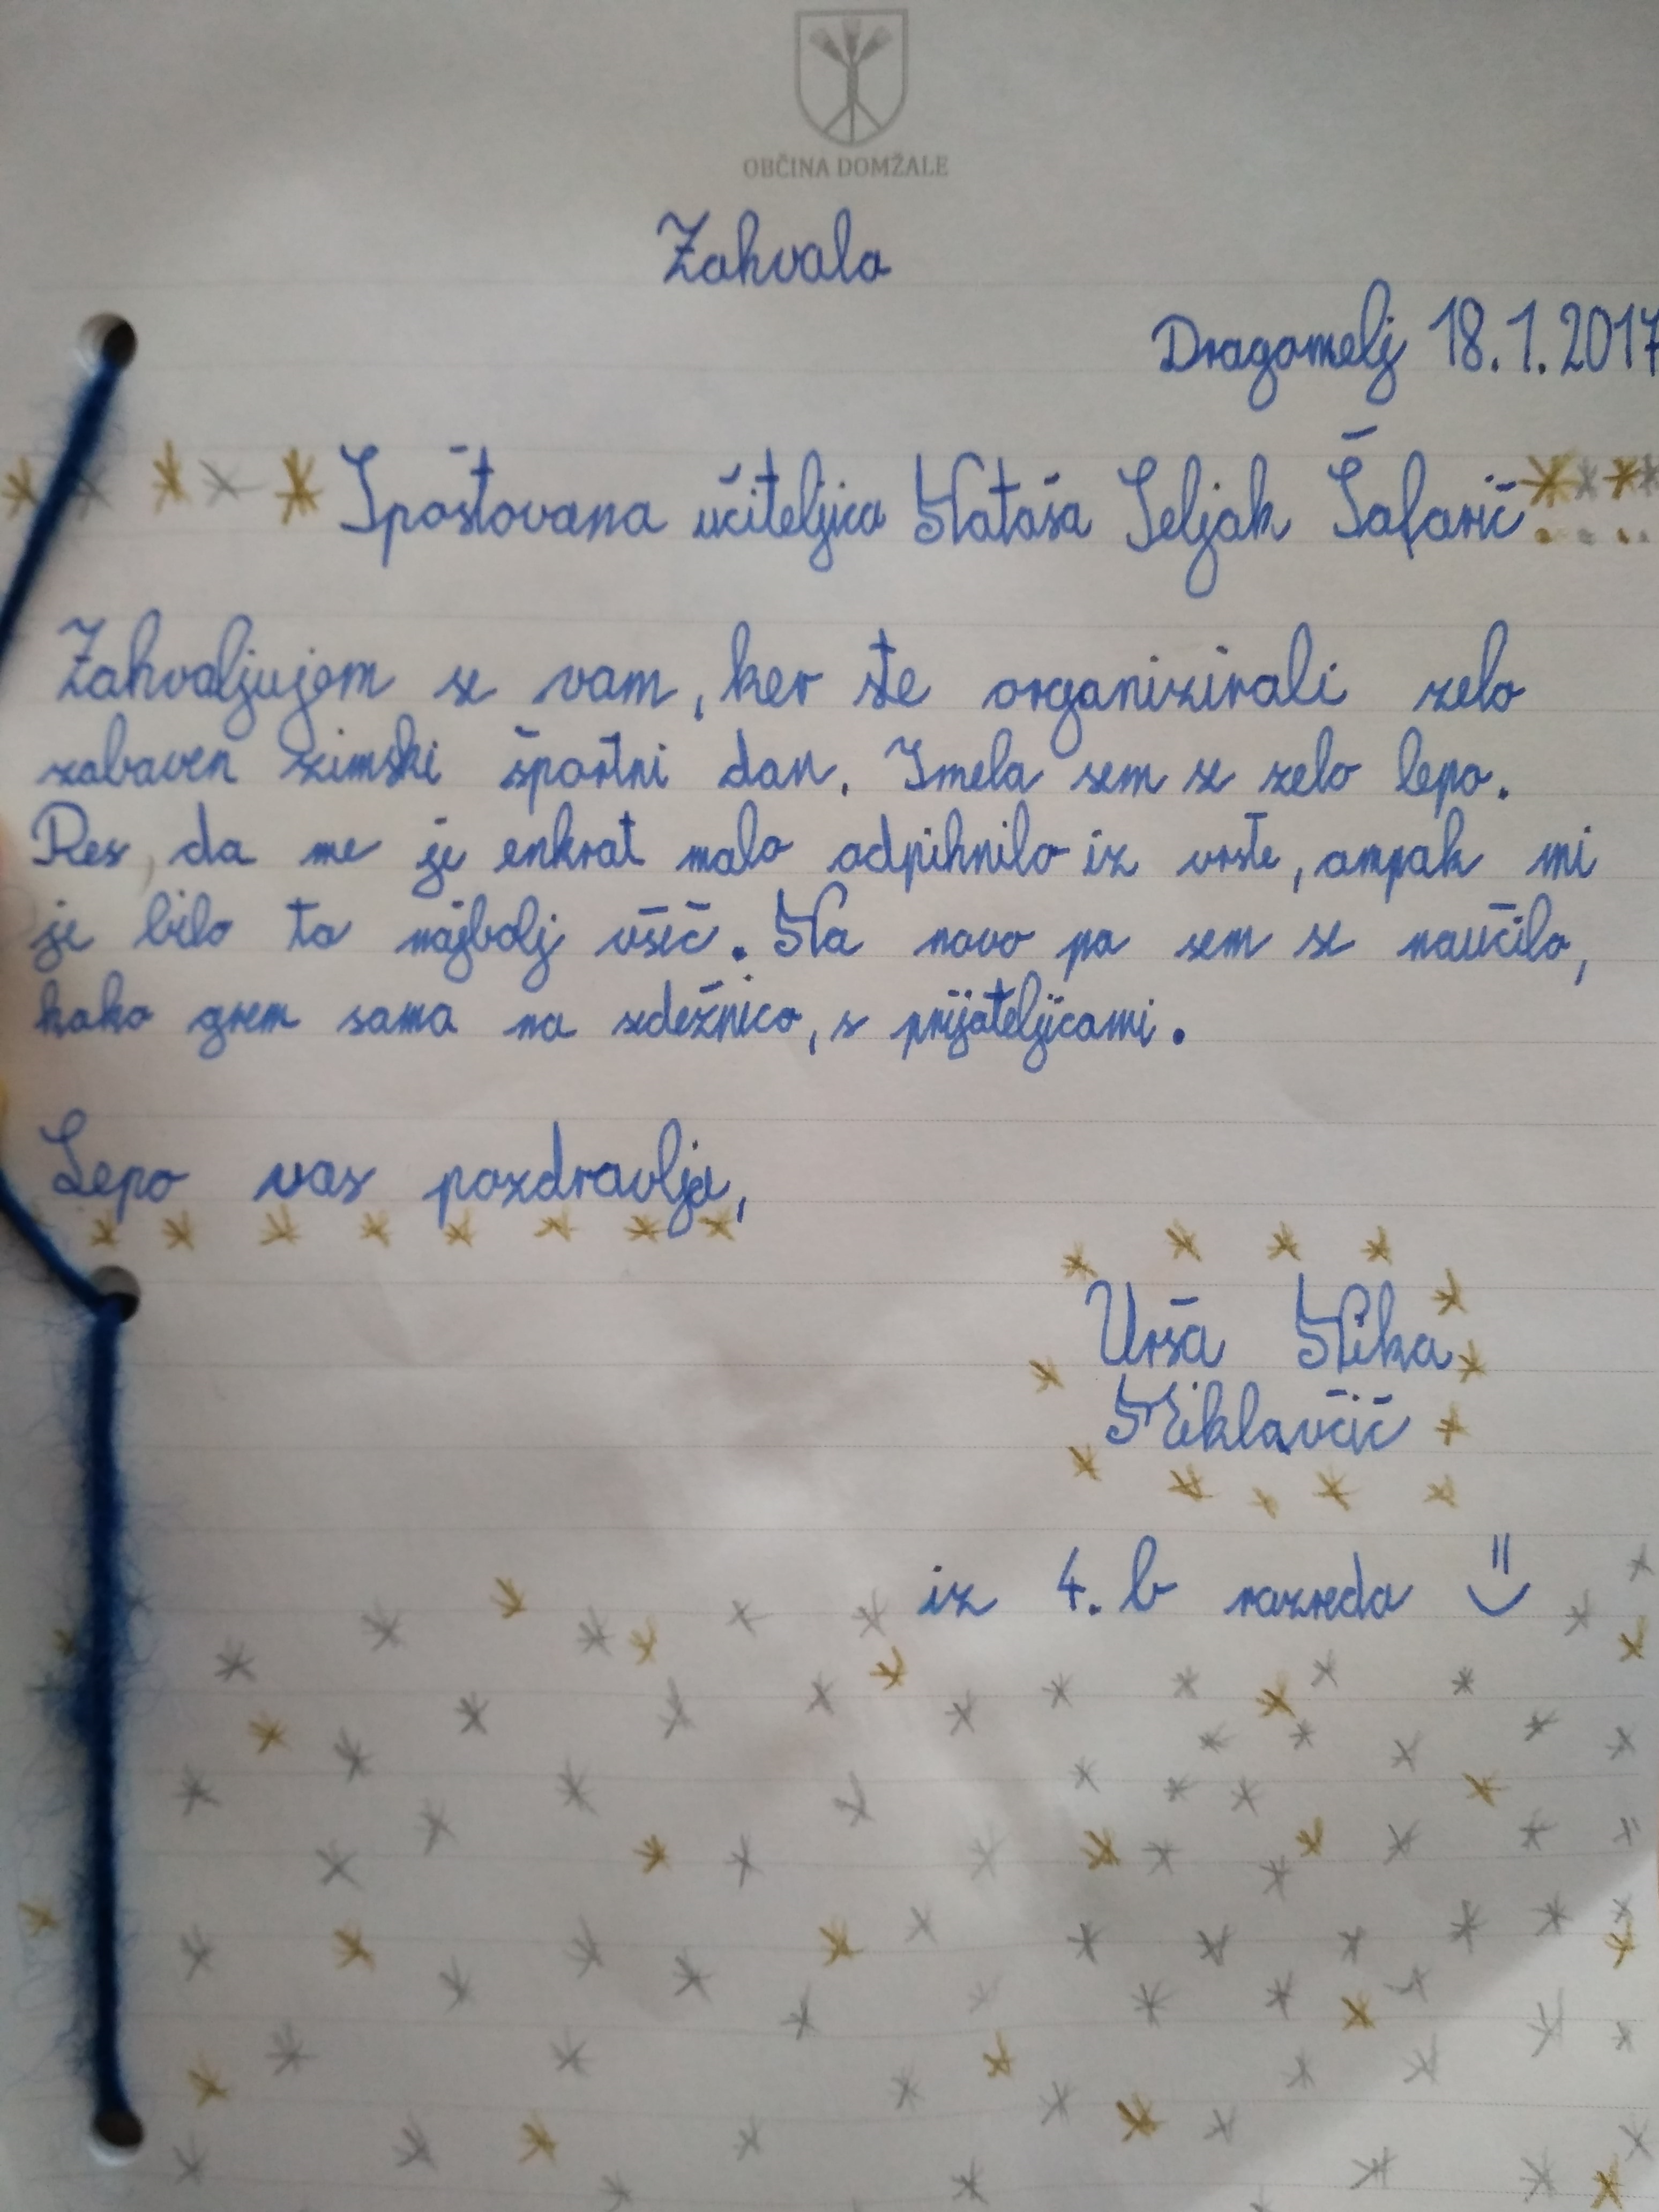 OBČINA DOMŽALE
Zahvala
Dragomelj 18.1.2017
Spoštovana učiteljica Nataša Seljak Šafarič
Zahvaljujem se vam, ker ste organizirali zelo
zabaven zimski športni dan. Imela sem se zelo lepo.
Res, da me je enkrat malo odpihnilo iz vrste, ampak mi
je bilo to najbolj všeč. Na novo pa sem se naučila,
kako grem sama na sedežnico, s prijateljicami.
Lepo vas pozdravlja,
Urša Nika
Miklavčič
iz 4. b razreda